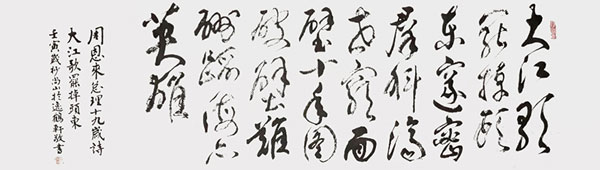 大江歌
罷掉頭
東邃密
群科濟
世窮面
壁十年图
破壁難
酬蹈海亦
英雄
周恩來总理十九歲詩
大江歌罷掉頭東
壬寅歲杪尚山於逸鶴軒敬書